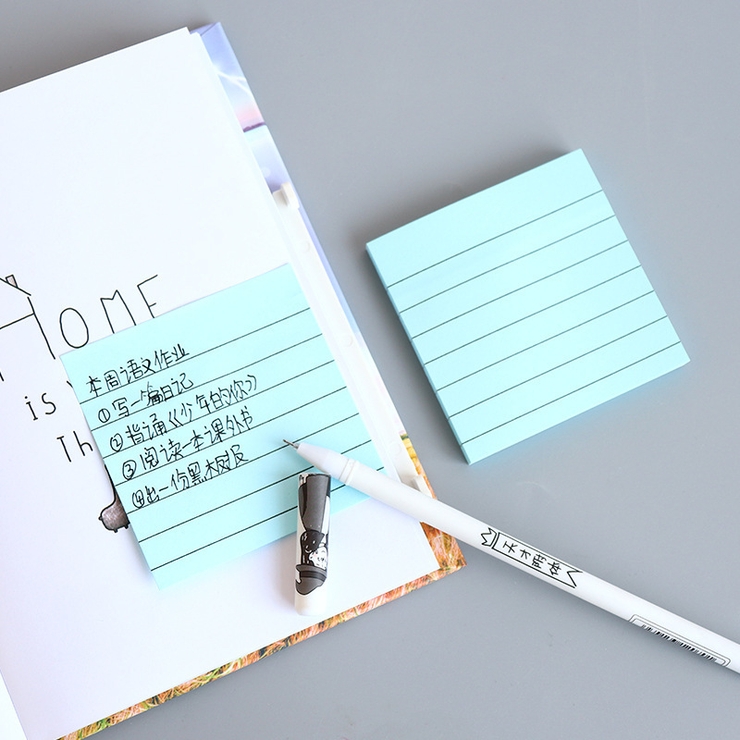 HOME
is
Th
本周语文作业
①写一篇日记
②背诵《少年的你》
③阅读一本课外书
④出一份黑板报